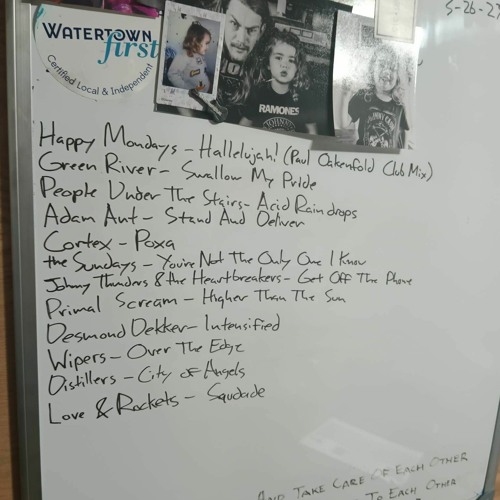 5-26-2
WATERTOWN
first
Certified Local & Independent
RAMONES
JOHNNY
Happy Mondays - Hallelujah! (Paul Oakenfold Club Mix)
Green River - Swallow My Pride
People Under The Stairs - Acid Raindrops
Adam Ant - Stand And Deliver
Cortex - Poxa
the Sundays - You're Not The Only One I Know
Johny Thunders & the Heartbreakers - Get Off The Phone
Primal Scream - Higher Than The Sun
Desmond Dekker - Intensified
Wipers - Over The Edge
Distillers - City of Angels
Love & Rockets - Saudade
AND TAKE CARE OF EACH OTHER
TO EACH OTHER